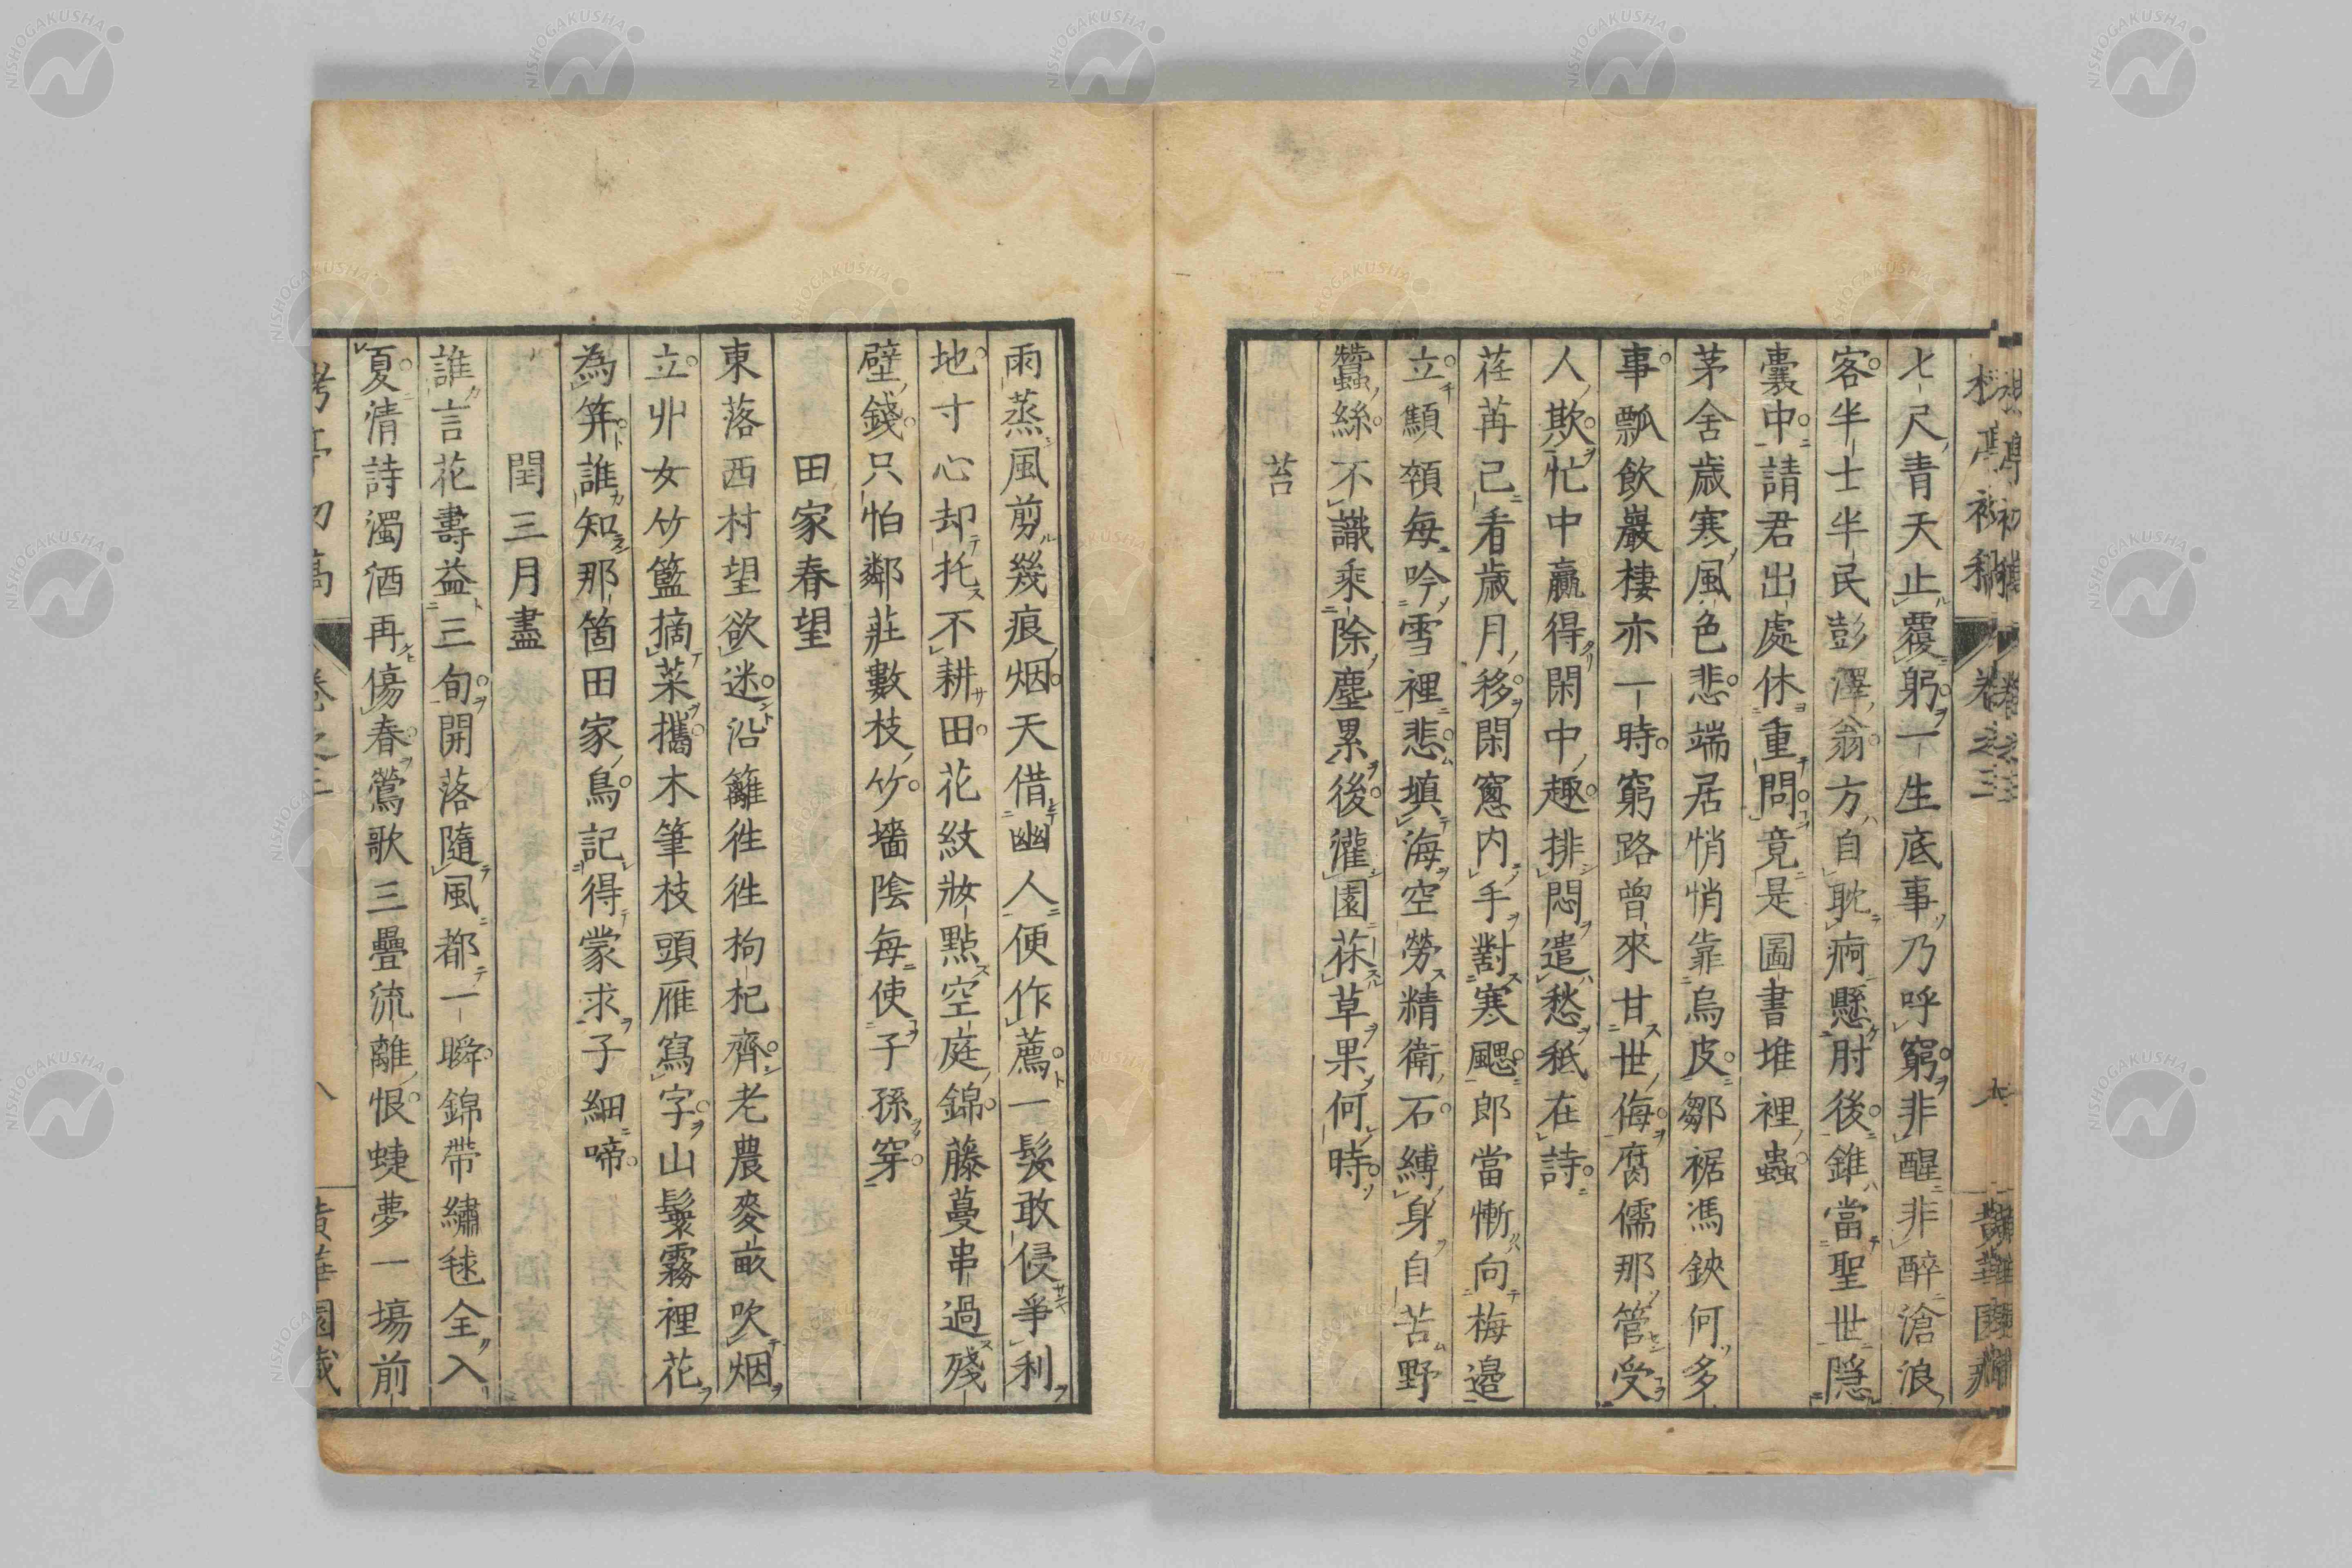 七尺青天止覆躬一生底事乃呼窮非醒非醉滄浪
客半士半民彭澤翁方自耽痾懸肘後錐當聖世隱
囊中請君出處休重問竟是圖書堆裡蟲
茅舍歳寒風色悲端居悄悄靠烏皮鄒裾馮鋏何多
事瓢飲巖棲亦一時窮路曾來甘世侮腐儒那管受
人欺忙中贏得閑中趣排悶遣愁秖在詩
荏苒已看歳月移閑窻内手對寒颸郎當慚向梅邉
立顦顇每吟雪裡悲填海空勞精衛石縛身自苦野
蠶絲不識乘除塵累後灌園葆草果何時
苔
雨蒸風剪幾痕烟天借幽人便作薦一髮敢侵爭利
地寸心却托不耕田花紋妝點空庭錦藤蔓串過殘
壁錢只怕鄰莊數枝竹墻陰每使子孫穿
田家春望
東落西村望欲迷沿籬徃徃枸杞齊老農麥畝吹烟
立丱女竹籃摘菜攜木筆枝頭雁寫字山鬟霧裡花
為笄誰知那箇田家鳥記得蒙求子細啼
閏三月盡
誰言花壽益三旬開落隨風都一瞬錦帶繡毬全入
夏清詩濁酒再傷春鶯歌三疊流離恨蜨夢一場前
卷之三
NISHOGAKUSHA